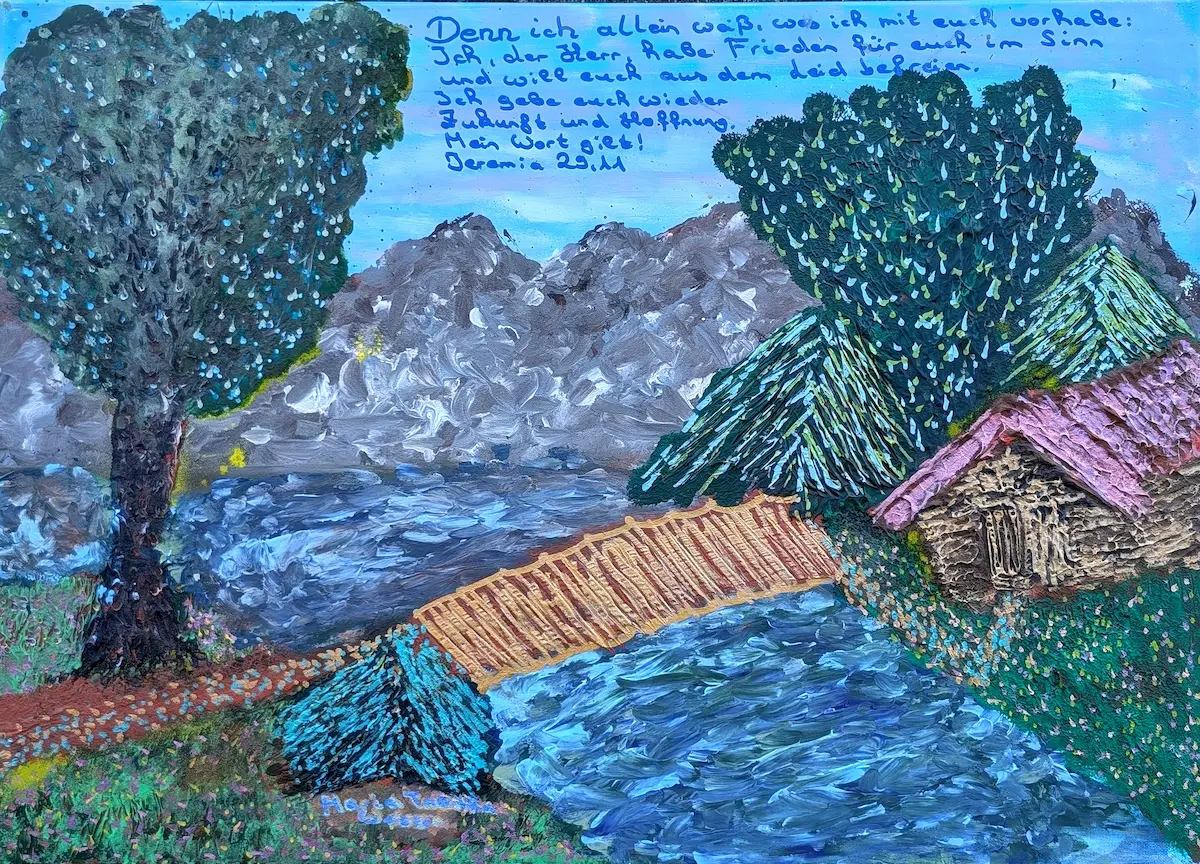 Denn ich allein weiß, was ich mit euch vorhabe:
Ich, der Herr, habe Frieden für euch im Sinn
und will euch aus dem Leid befreien.
Ich gebe euch wieder
Zukunft und Hoffnung.
Mein Wort gilt!
Jeremia 29,11